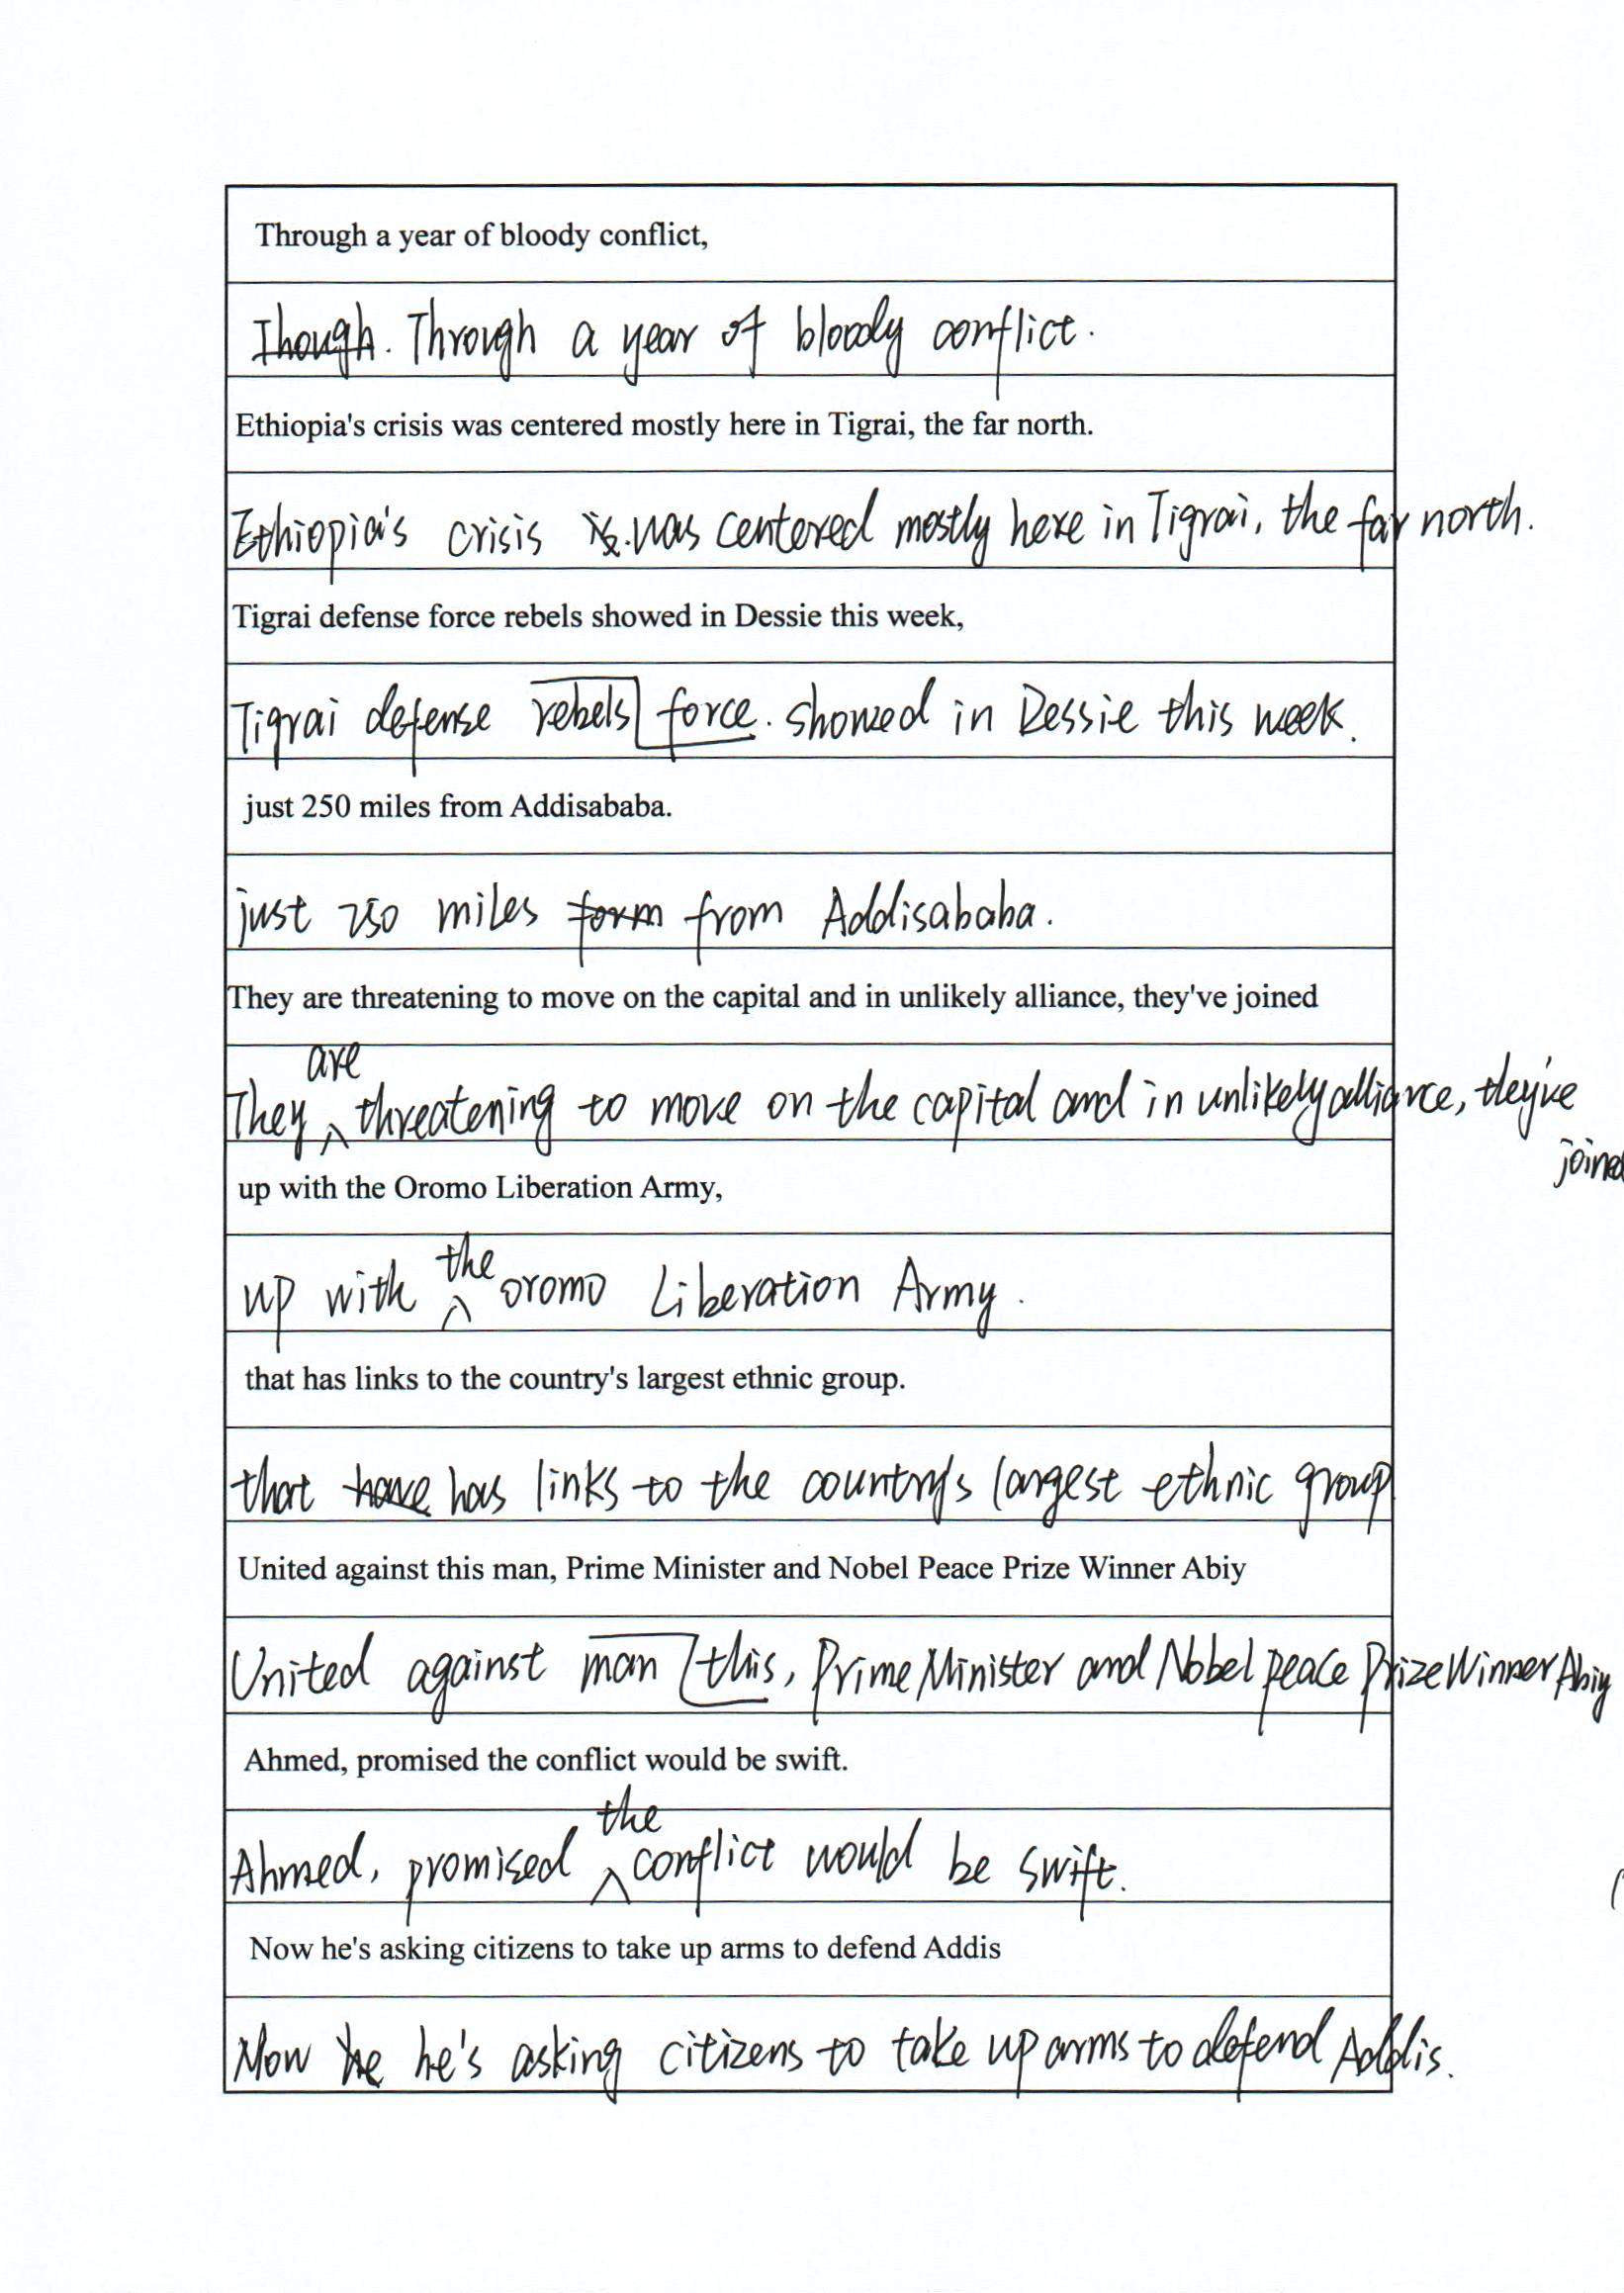 Through a year of bloody conflict,
Though. Through a year of bloody conflict.
Ethiopia's crisis was centered mostly here in Tigrai, the far north.
Ethiopia's crisis is. was centered mostly here in Tigrai, the far north.
Tigrai defense force rebels showed in Dessie this week,
Tigrai defense rebels force. showed in Dessie this week.
just 250 miles from Addisababa.
just 250 miles form from Addisababa.
They are threatening to move on the capital and in unlikely alliance, they've joined
They are threatening to move on the capital and in unlikely alliance, they've
joined
up with the Oromo Liberation Army,
up with the oromo Liberation Army.
that has links to the country's largest ethnic group.
that have has links to the country's largest ethnic group
United against this man, Prime Minister and Nobel Peace Prize Winner Abiy
United against man this, Prime Minister and Nobel peace Prize Winner Abiy
Ahmed, promised the conflict would be swift.
Ahmed, promised the conflict would be swift.
Now he's asking citizens to take up arms to defend Addis
Now he he's asking citizens to take up arms to defend Addis.